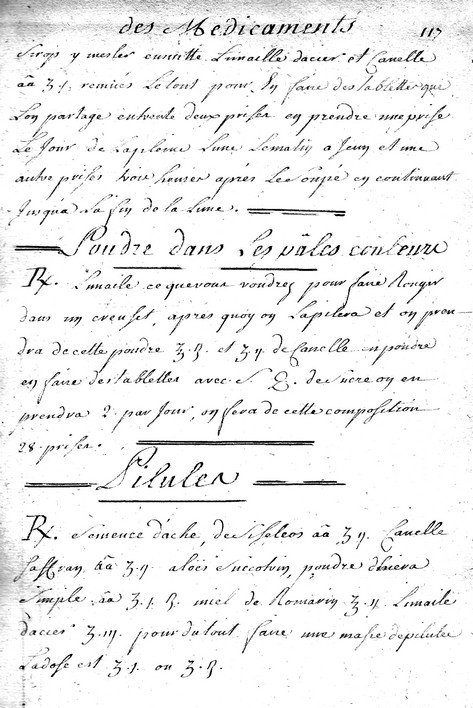 des Medicaments 117
Sirop y mesler ensuitte Limaille dacier et Canelle
āā ʒ.j. remües Le tout pour En faire des tablettes que
Lon partage entrente deux prises en prendre une prise
Le Jour de Laplene Lune Lematin a Jeun et une
autre prises trois heures aprés Le Soupé en continuant
Jusqua La fin de la Lune.
Poudre dans Les pâles couleurs
℞. Limaile ce que vous voudrez pour faire Rouger
dans un creuset, apres quoy on Lapilera et on pren-
dra de cette poudre ʒ. ß. et ʒ ij de Canelle en poudre
en faire des tablettes avec S. Q. de Sucre on en
prendra 2. par Jour, on fera de cette composition
28. prises.
Pilules
℞. Semence d'ache, de Siseleos āā ʒ ij. Canelle
Saffran āā ʒ. ij aloës Succotrin, poudre d'hiera
Simple āā ʒ. j. ß. miel de Romarin ʒ. ij. Limaile
dacier ʒ. iij. pour du tout faire une masse de pilules
La dose est ʒ. j. ou ʒ. ß.